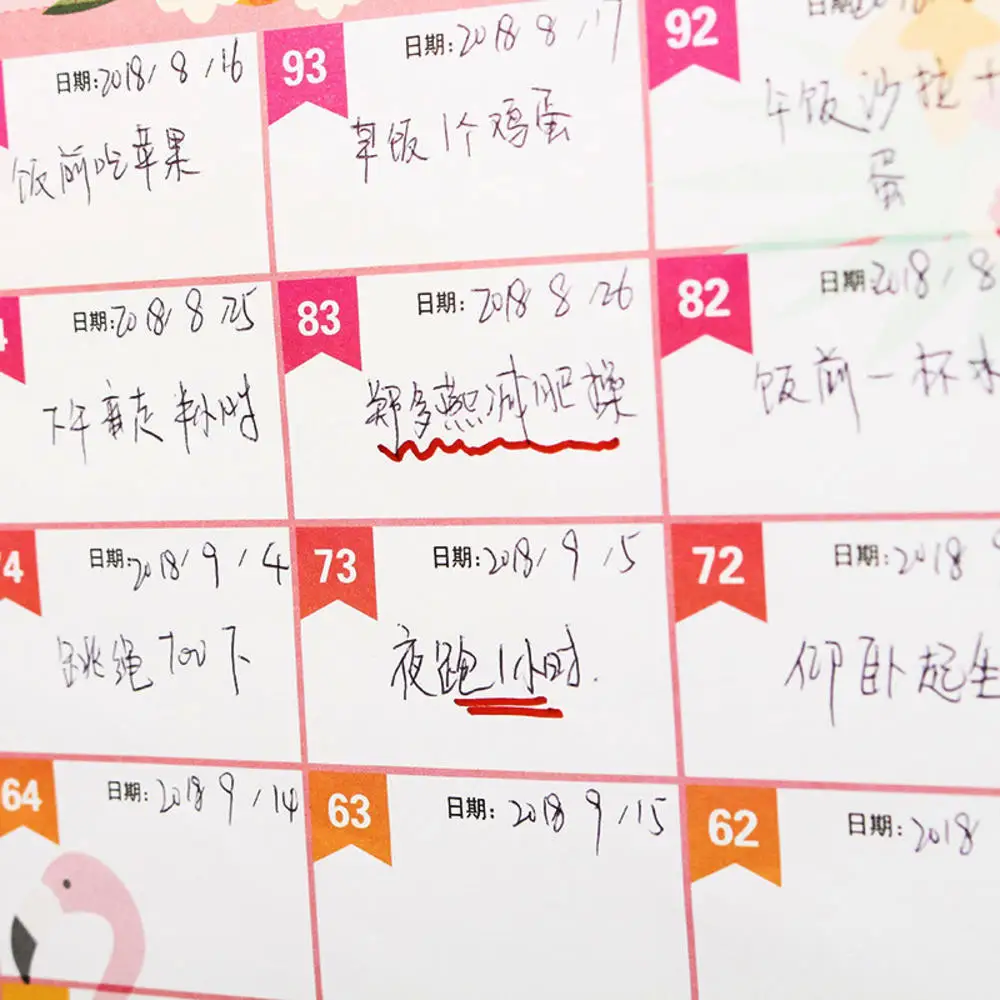 日期:2018/8/16
饭前吃苹果
93
日期:2018 8 /17
早饭1个鸡蛋
92
日期:2018/8
午饭沙拉+
蛋
4
日期:2018/8/25
下午竞走半小时
83
日期:2018 8 /26
郑多燕减肥操
82
日期:2018/8
饭前一杯水
74
日期:2018/9/4
跳绳700下
73
日期:2018/9/5
夜跑1小时.
72
日期:2018
仰卧起坐
64
日期:2018 9/14
63
日期:2018 9/15
62
日期:2018